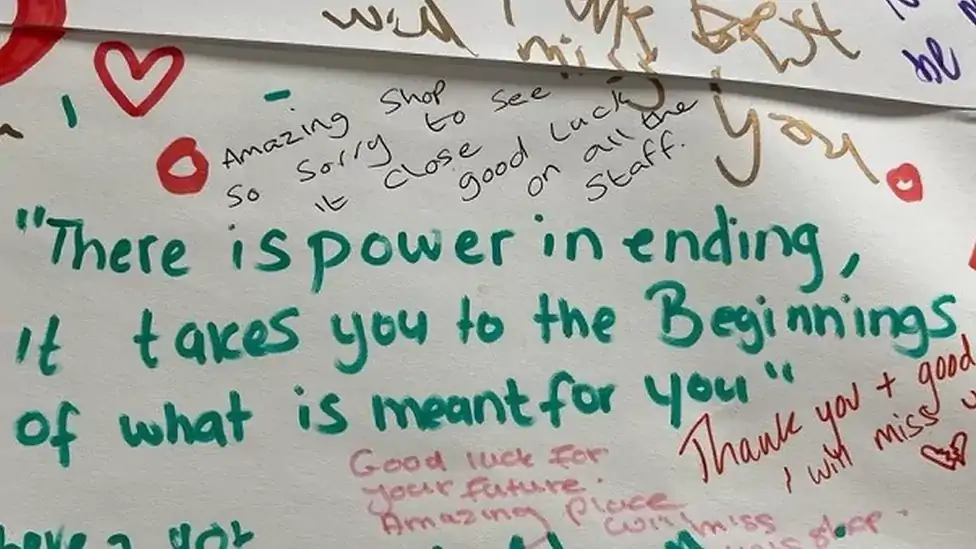 will miss
best
you
be
Amazing shop
so sorry to see
it close good luck
on all the
staff.
"There is power in ending,
it takes you to the Beginnings
of what is meant for you"
Thank you + good
I will miss
Good luck for
your future.
Amazing place
will miss